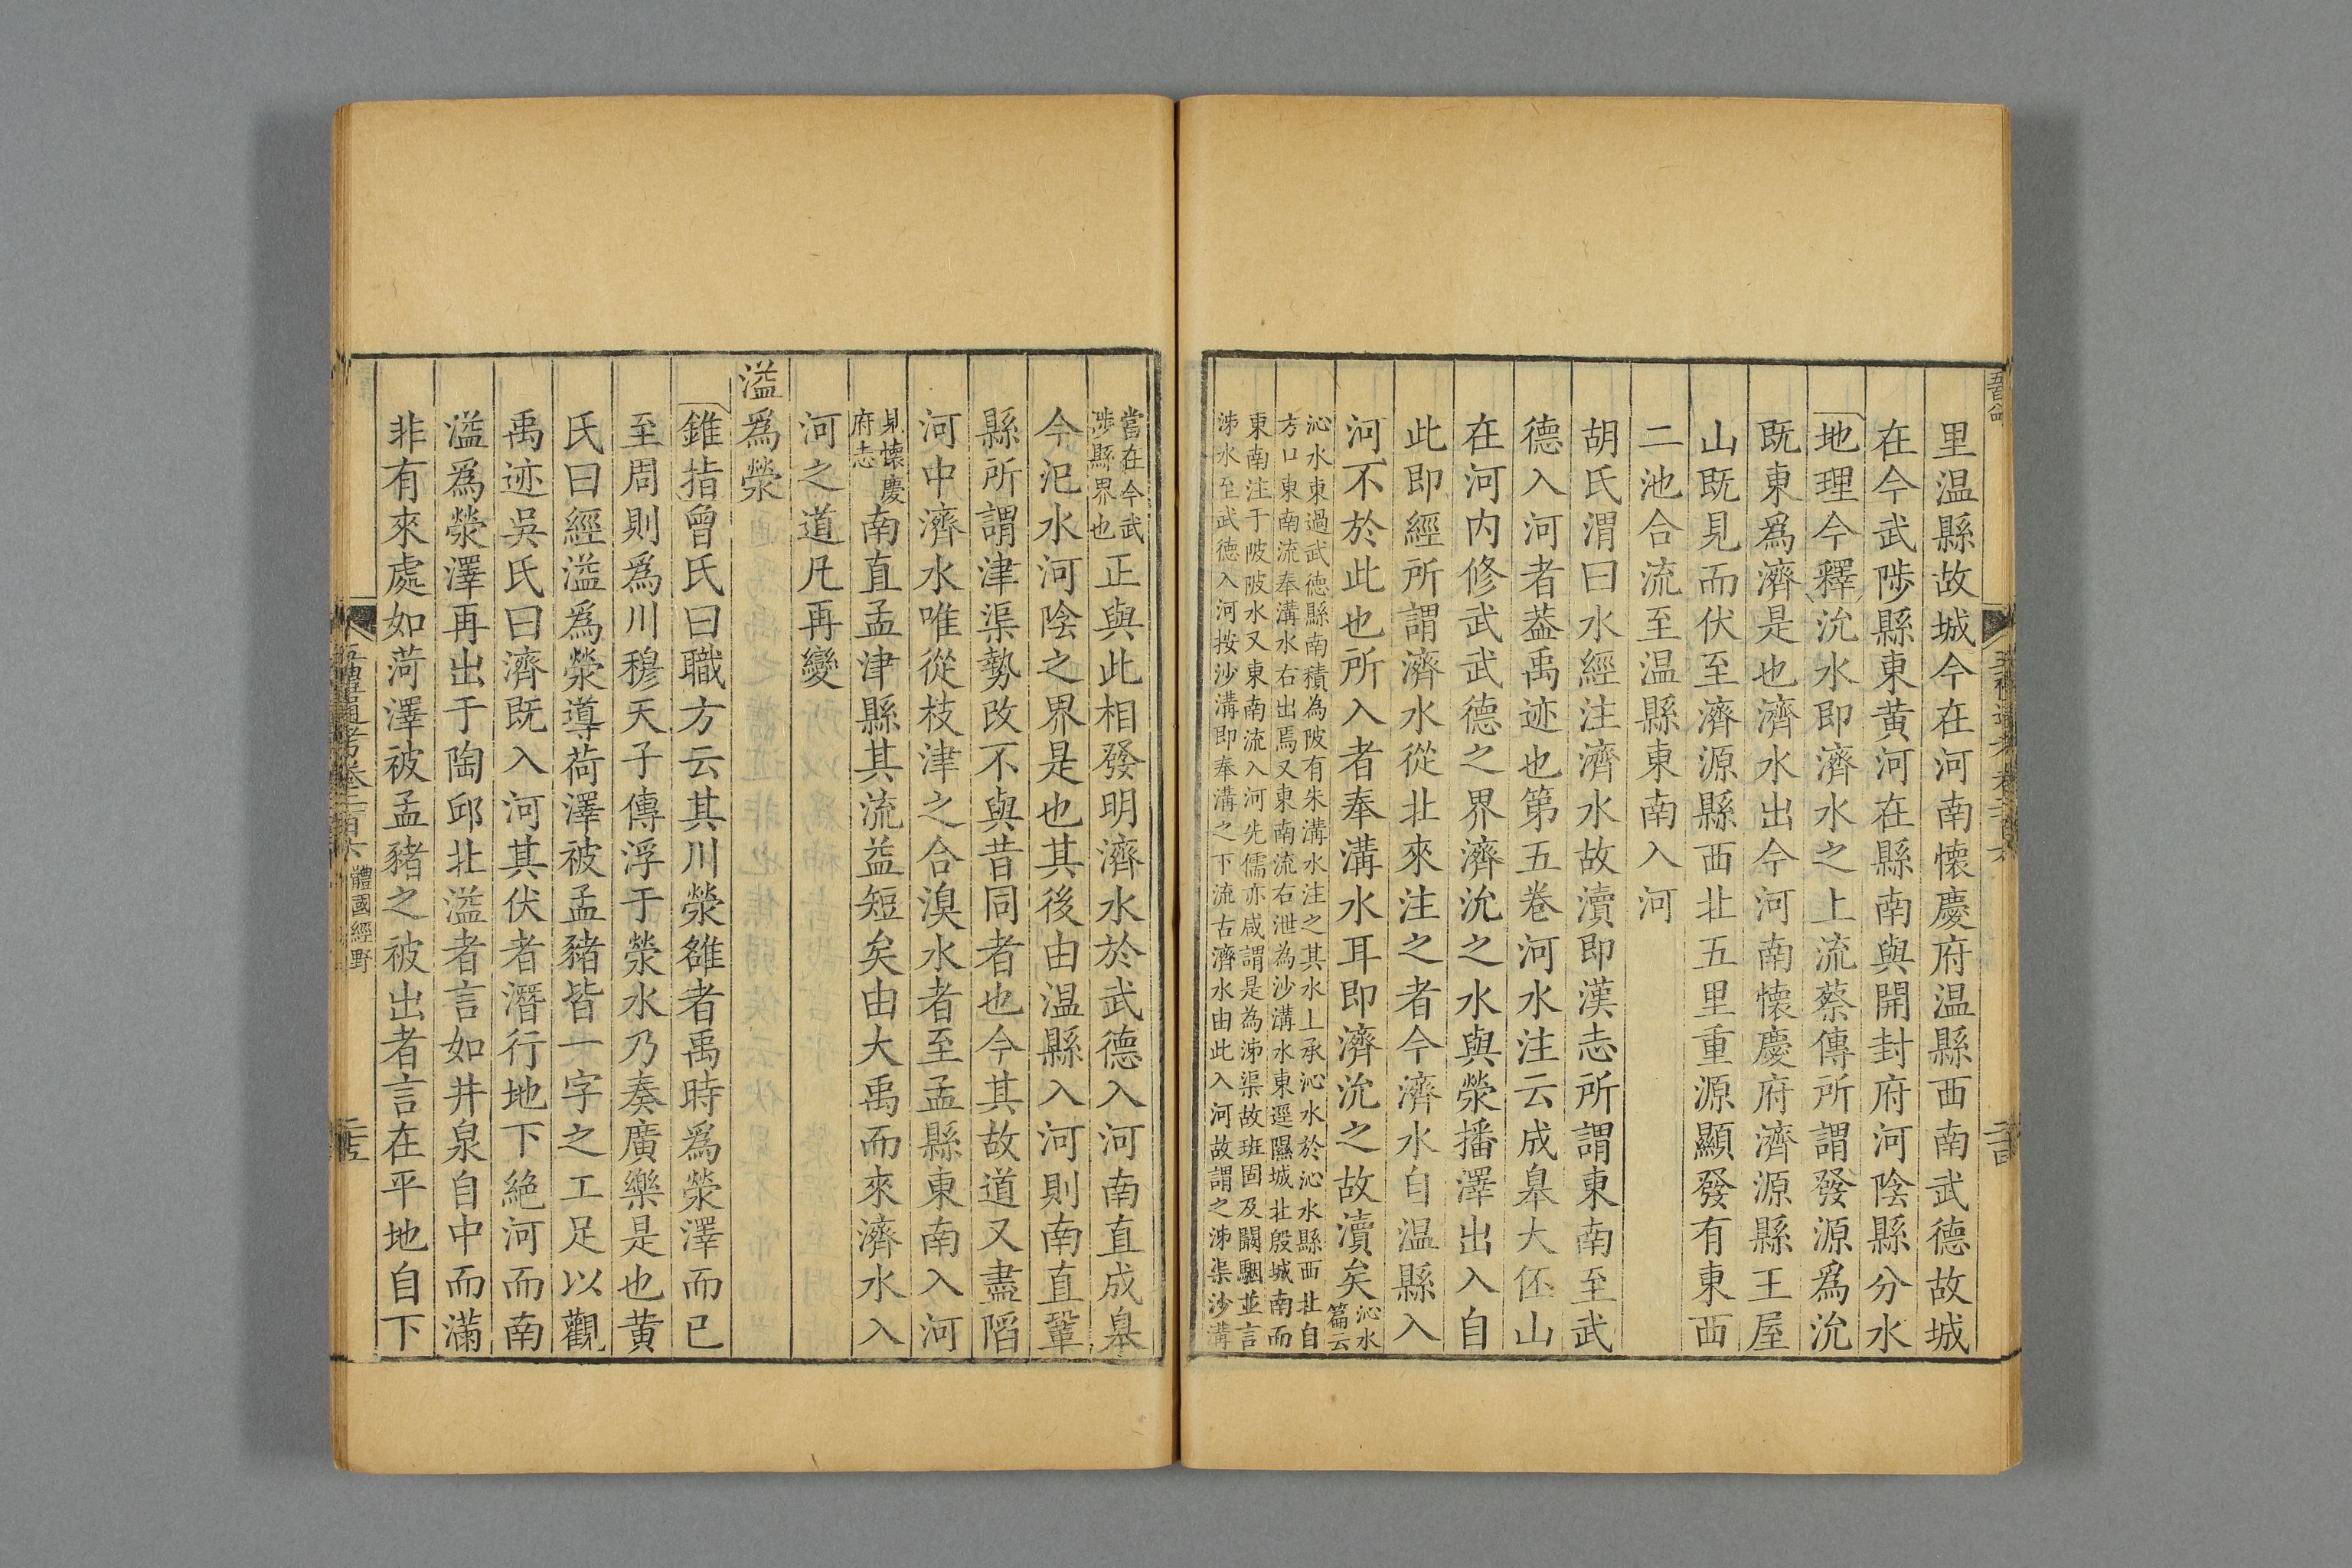 里温縣故城今在河南懷慶府温縣西南武德故城
在今武陟縣東黄河在縣南與開封府河陰縣分水
地理今釋沇水即濟水之上流蔡傳所謂發源爲沇
既東爲濟是也濟水出今河南懷慶府濟源縣王屋
山既見而伏至濟源縣西北五里重源顯發有東西
二池合流至温縣東南入河
胡氏渭曰水經注濟水故瀆即漢志所謂東南至武
德入河者葢禹迹也第五卷河水注云成皋大伾山
在河内修武武德之界濟沇之水與滎播澤出入自
此即經所謂濟水從北來注之者今濟水自温縣入
河不於此也所入者奉溝水耳即濟沇之故瀆矣沁水
篇云
沁水東過武德縣南積為陂有朱溝水注之其水上承沁水於沁水縣西北自
方口東南流奉溝水右出焉又東南流右泄為沙溝水東逕隰城北殷城南而
東南注于陂陂水又東南流入河先儒亦咸謂是為泲渠故班固及闞駰並言
泲水至武德入河按沙溝即奉溝之下流古濟水由此入河故謂之泲渠沙溝
當在今武
陟縣界也正與此相發明濟水於武德入河南直成皋
今汜水河陰之界是也其後由温縣入河則南直鞏
縣所謂津渠勢改不與昔同者也今其故道又盡陷
河中濟水唯從枝津之合溴水者至孟縣東南入河
見懷慶
府志南直孟津縣其流益短矣由大禹而來濟水入
河之道凡再變
溢爲滎
錐指曾氏曰職方云其川滎雒者禹時爲滎澤而已
至周則爲川穆天子傳浮于滎水乃奏廣樂是也黄
氏曰經溢爲滎導荷澤被孟豬皆一字之工足以觀
禹迹吳氏曰濟既入河其伏者潛行地下絶河而南
溢爲滎澤再出于陶邱北溢者言如井泉自中而滿
非有來處如菏澤被孟豬之被出者言在平地自下
五禮通考卷二百六 體國經野 二十五